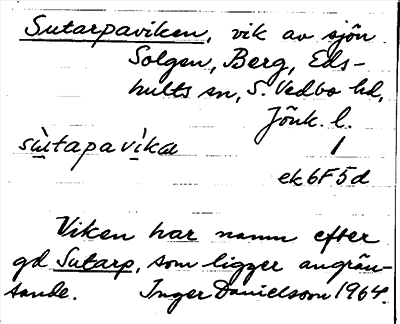 Sutarpaviken, vik av sjön
Solgen, Berg, Eds-
hults sn, S. Vedbo hd,
Jönk. l.
sùtapavìka 1
ek6F5d
Viken har namn efter
gd Sutarp, som ligger angrän-
sande. Inger Danielsson 1964.